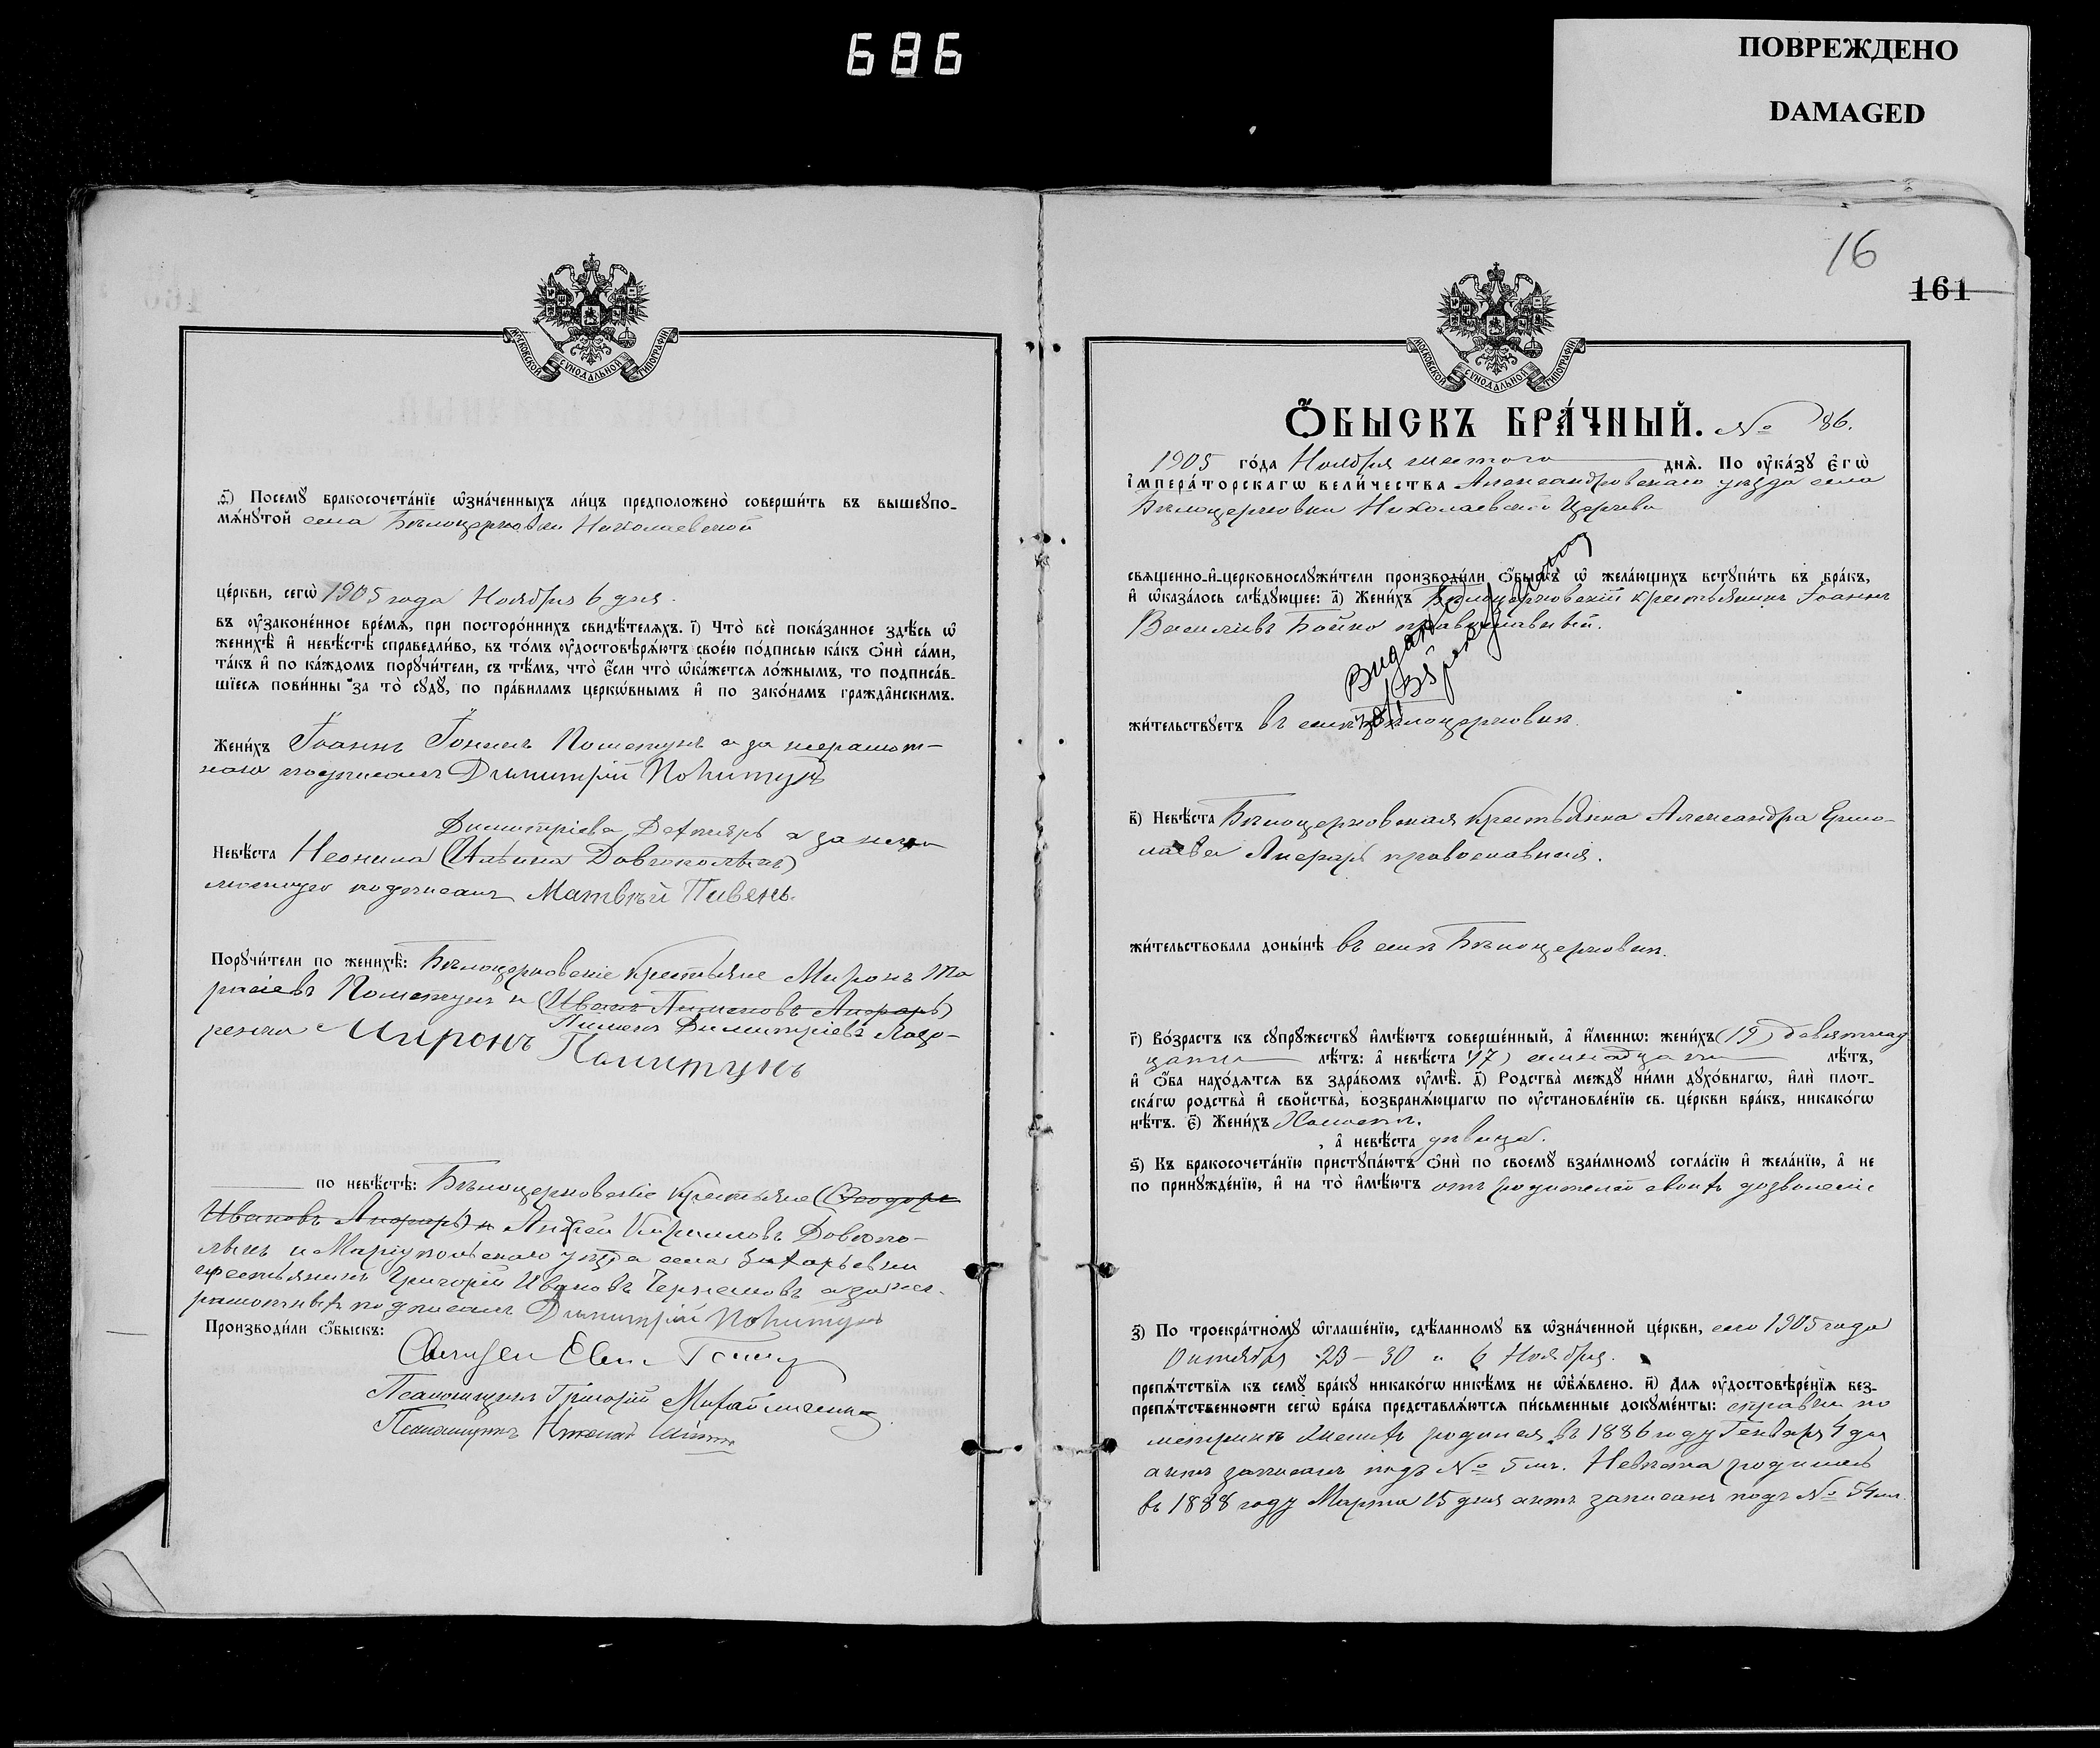 686
ПОВРЕЖДЕНО
DAMAGED
МОСКОВСКОЙ СѴНОДАЛЬНОЙ ТИПОГРАФІИ
ѳ҃) Посемꙋ̀ бракосочета́нїе ѡ҆зна́ченныхъ ли́цъ предположено̀ соверши́ть въ вышеꙋпо-
мѧ́нꙋтой села Бѣлоцерковки Николаевской
це́ркви, сегѡ̀ 1905 года Ноября 6 дня.
въ ᲂу҆зако́ненное вре́мѧ, при посторо́ннихъ свидѣ́телѧхъ. і҃) Что̀ всѐ пока́занное здѣ́сь ѡ҆
женихѣ̀ и҆ невѣ́стѣ справедли́во, въ то́мъ ᲂу҆достовѣрѧ́ютъ своє́ю по́дписью ка́къ ѻ҆нѝ са́ми,
та́къ и҆ по ка́ждомъ порꙋчи́тели, съ тѣ́мъ, что̀ є҆́сли что̀ ѡ҆ка́жетсѧ ло́жнымъ, то подписа́в-
шїесѧ пови́нны за то̀ сꙋдꙋ̀, по пра́виламъ церкѡ́внымъ и҆ по зако́намъ гражда̂нскимъ.
Жени́хъ Іоаннъ Іонинъ Пометунъ а за неграмот-
наго подписалъ Димитрій Пометунъ
Димитріева Дехтяръ а за негра
Невѣ́ста Неонила (Ильина Довгополыхъ)
мотную подписалъ Матвѣй Пивень.
Порꙋчи́тели по женихѣ̀: Бѣлоцерковскіе крестьяне Миронъ Та
расіевъ Пометунъ и (Иванъ Пименовъ Аноръ)
Пименъ Димитріевъ Лазо-
ренко Миронъ
Памитунъ
по невѣ́стѣ: Бѣлоцерковскіе крестьяне (Ѳеодоръ
Ивановъ) и Андрей Кирилловъ Довгопо-
лыхъ и Маріупольскаго уѣзда села Захарьевки
крестьянинъ Григорій Ивановъ а за не-
грамотныхъ подписалъ Димитрій Пометунъ
Производи́ли ѻ҆́быскъ:
Священ
Псаломщикъ Григорій Михайличенко
Псаломщикъ Николай
16
161
МОСКОВСКОЙ СѴНОДАЛЬНОЙ ТИПОГРАФІИ
Ѻ҆БЫСКЪ БРА́ЧНЫЙ. № 86.
1905 го́да Ноября шестого днѧ̀. По ᲂу҆ка́зꙋ є҆гѡ̀
і҆мпера́торскагѡ вели́чества Александровскаго уѣзда села
Бѣлоцерковки Николаевской Церкви
свѧщенно-и҆-церковнослꙋжи́тели производи́ли ѻ҆́быскъ ѡ҆ жела́ющихъ встꙋпи́ть въ бра́къ,
и҆ ѡ҆каза́лось слѣ́дꙋющее: а҃) Жени́хъ Бѣлоцерковскій крестьянинъ Іоаннъ
Васильевъ Бойко православный.
жи́тельствꙋетъ въ селѣ Бѣлоцерковкѣ
в҃) Невѣ́ста Бѣлоцерковская крестьянка Александра Ермо-
лаева православная.
жи́тельствовала доны́нѣ въ селѣ Бѣлоцерковкѣ.
г҃) Во́зрастъ къ сꙋпрꙋ́жествꙋ и҆мѣ́ютъ соверше́нный, а҆ и҆́меннѡ: жени́хъ (19) девятнад
цати лѣ́тъ: а҆ невѣ́ста (17) семнадцати лѣ́тъ,
и҆ ѻ҆́ба нахо́дѧтсѧ въ здра́вомъ ᲂу҆мѣ̀. д҃) Родства̀ междꙋ̀ ни́ми дꙋхо́внагѡ, и҆лѝ плот-
ска́гѡ родства̀ и҆ свойства̀, возбранѧ́ющагѡ по ᲂу҆становле́нїю св. це́ркви бра́къ, никако́гѡ
нѣ́тъ. є҃) Жени́хъ Холостъ.
, а҆ невѣ́ста дѣвица.
ѕ҃) Къ бракосочета́нїю пристꙋпа́ютъ ѻ҆нѝ по своемꙋ̀ взаи́мномꙋ согла́сїю и҆ жела́нїю, а҆ не
по принꙋжде́нїю, и҆ на то̀ и҆мѣ́ютъ отъ родителей своихъ дозволеніе
з҃) По троекра́тномꙋ ѡ҆глаше́нїю, сдѣ́ланномꙋ въ ѡ҆зна́ченной це́ркви, сего 1905 года
Октября 23–30 и 6 Ноября.
препѧ́тствїѧ къ семꙋ̀ бра́кꙋ никако́гѡ никѣ́мъ не ѡ҆б̾ѧ́влено. и҃) Длѧ̀ ᲂу҆достовѣре́нїѧ без-
препѧ́тственности сегѡ̀ бра́ка представлѧ́ютсѧ пи́сьменные докꙋме́нты: справки по
метрикѣ Женихъ родился въ 1886 году Генваря 4 дня
актъ записанъ подъ № 5 мъ. Невѣста родилась
въ 1888 году Марта 15 дня актъ записанъ подъ № 54 мъ.